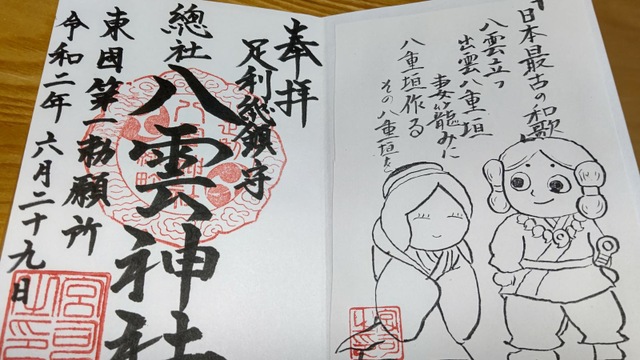 日本最古の和歌
八雲立つ
出雲八重垣
妻籠みに
八重垣作る
その八重垣を
奉拝
足利総鎮守
總社
八雲神社
東国第一勅願所
令和二年 六月二十九日
宮司之印